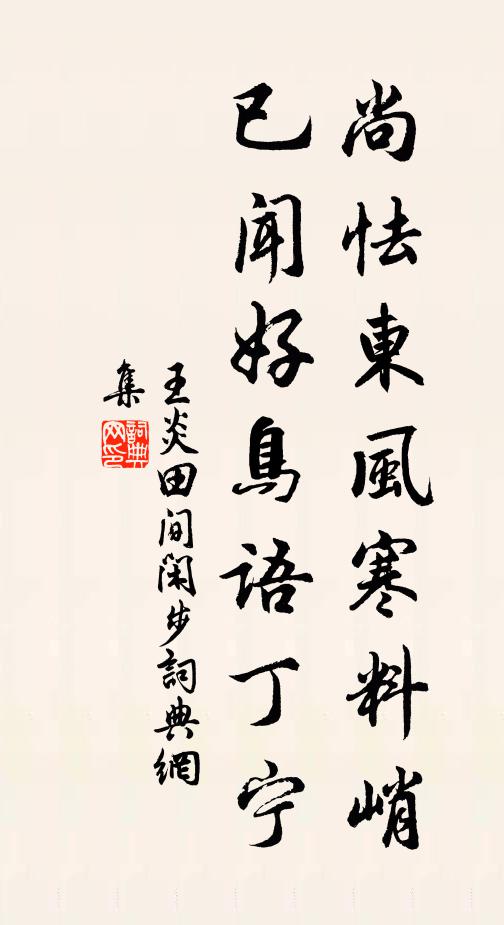 尚怯東風寒料峭
已聞好鳥語丁宁
王炎田間閑步詞典網
集
詞典網印